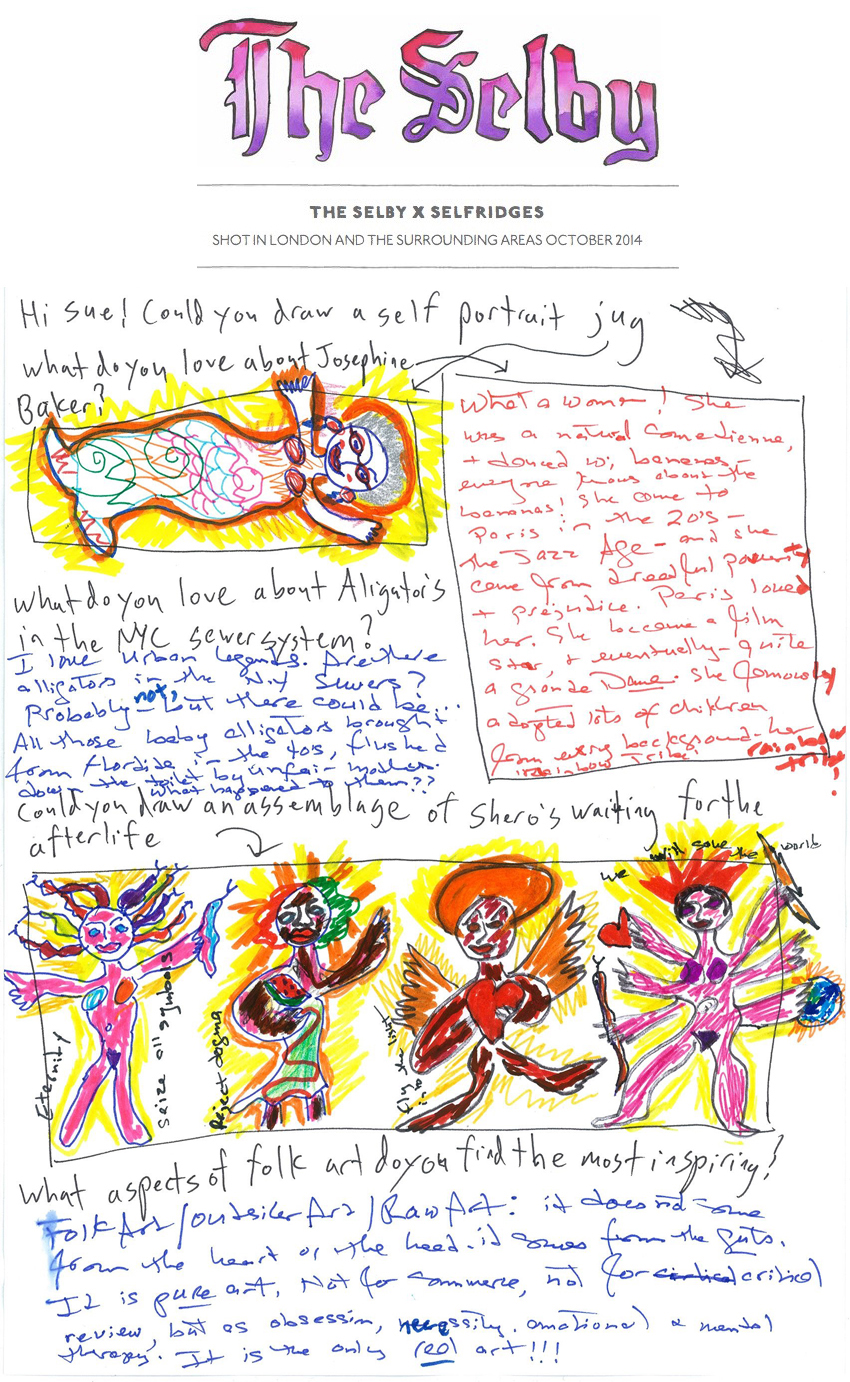 The Selby
THE SELBY X SELFRIDGES
SHOT IN LONDON AND THE SURROUNDING AREAS OCTOBER 2014
Hi Sue! Could you draw a self portrait jug
what do you love about Josephine
Baker?
What a woman! She
was a natural comedienne,
+ danced w; bananas -
everyone knows about the
bananas! She came to
Paris in the 20's -
the Jazz Age - and she
came from dreadful poverty
+ prejudice. Paris loved
her. She became a film
star, + eventually - quite
a grande Dame. She famously
adopted lots of children
from every background - her
rainbow tribe rainbow
tribe!
what do you love about Aligator's
in the NYC sewer system?
I love Urban legends. Are there
alligators in the N.Y. Sewers?
Probably not, but there could be...
All those baby alligators brought
from Florida in the 40s, flushed
down the toilet by unfair mothers.
what happened to them??
Could you draw an assemblage of shero's waiting for the
afterlife
we will save the world
Eternity
Seize all symbols
Reject dogma
Fly the
into
what aspects of folk art do you find the most inspiring?
Folk Art/Outsider Art/Raw Art: it does not come
from the heart or the head. it comes from the guts.
It is pure art. Not for commerce, not for critical
review, but as obsession, necessity, emotional & mental
therapy. It is the only real art!!!